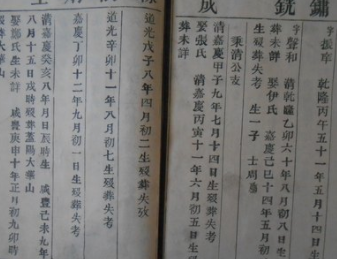 鏞 銑 成
字振岸 乾隆丙午五十一年五月十四日
字聲和 清乾隆乙卯六十年八月初八日生
葬未詳 娶伊氏 嘉慶己巳十四年五月初
生殁葬失考 生一子 士周
秉清公支
清嘉慶甲子九年七月十四日生殁葬失考
娶張氏 清嘉慶丙寅十一年六月初五生
葬未詳
道光戊子八年四月初二生殁葬失攷
道光辛卯十一年八月初七生殁葬失考
嘉慶丁卯十二年九月初一日生殁葬失考
清嘉慶癸亥八年 月日辰時生 咸豐己未九年
八月十五日戌時殁葬 陽大華山
娶鄭氏生未詳 咸豐庚申十年正月初九卯時
葬大華山